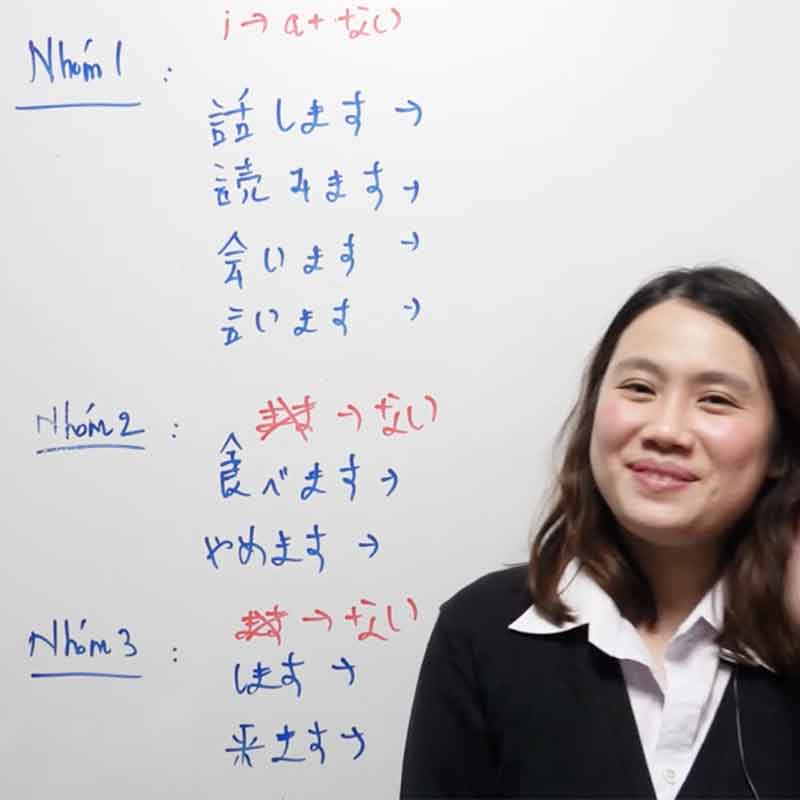 i → a + ない
Nhóm 1 :
話します →
読みます →
会います →
言います →
Nhóm 2 : ます → ない
食べます →
やめます →
Nhóm 3 : ます → ない
します →
来ます →